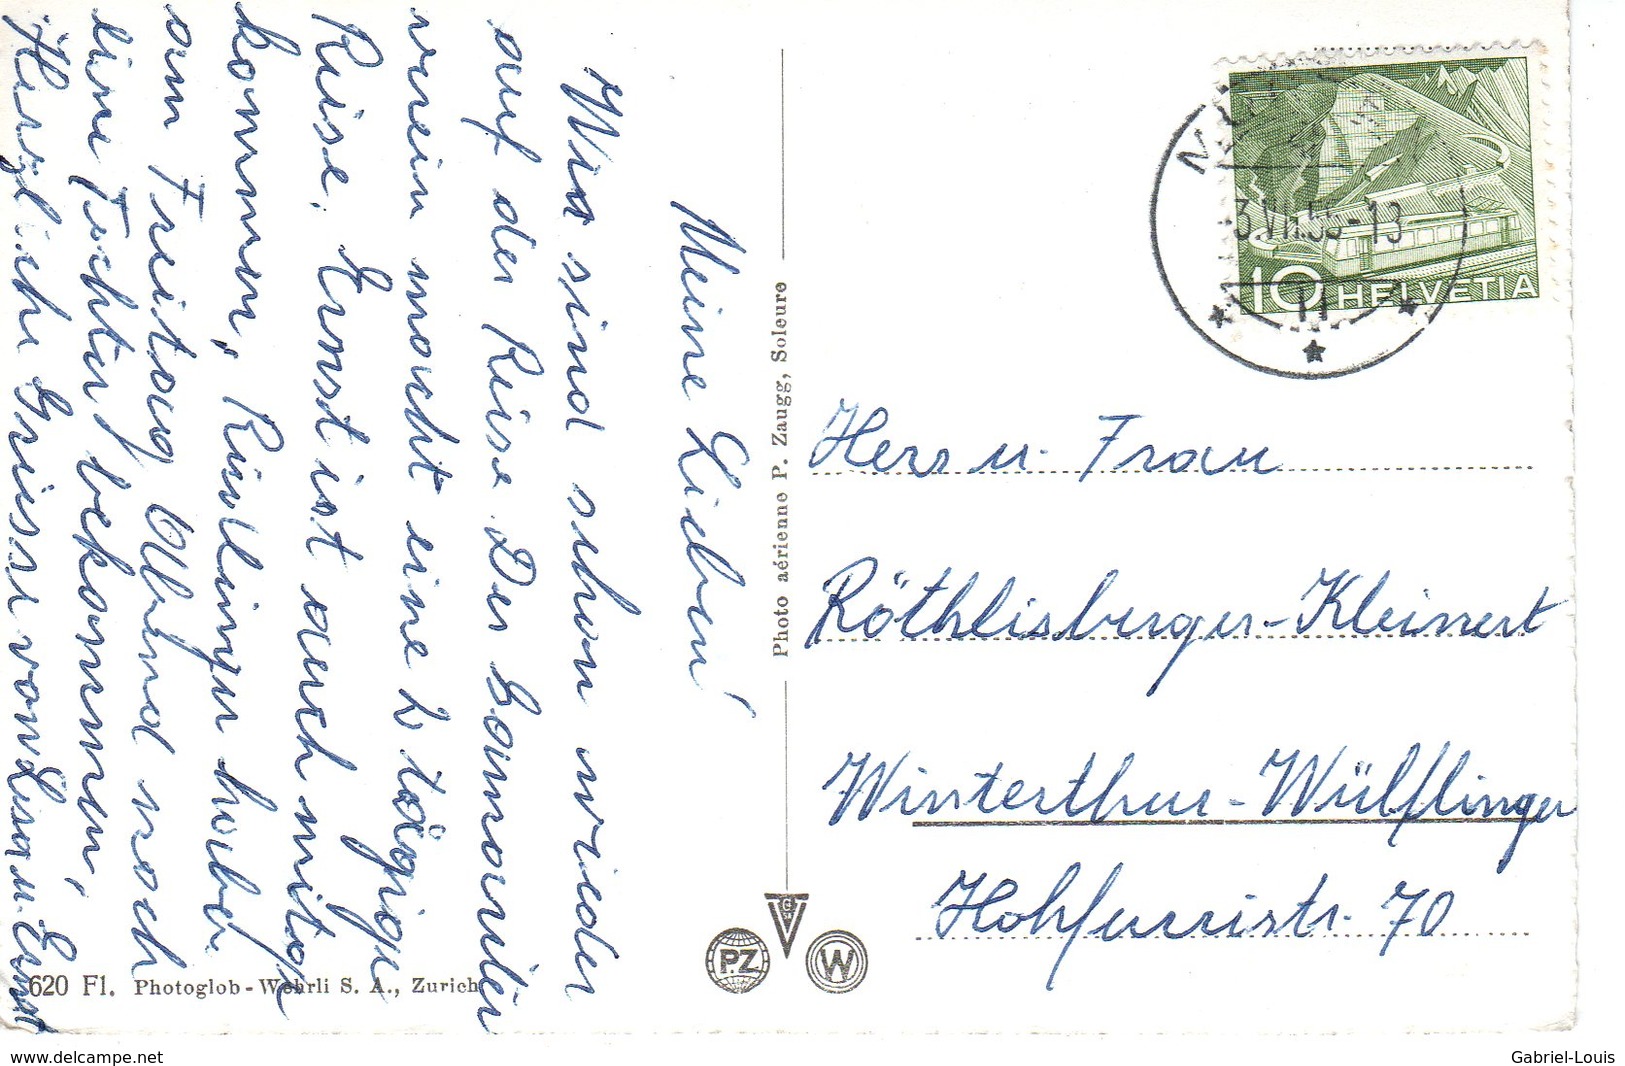 Meine Lieben!
Wir sind schon wieder
auf der Reise. Der Samariter
verein macht eine 2 tägige
Reise. Ernst ist auch mitge
kommen, Rüdlinger haben
am Freitag Abend noch
eine Tochter bekommen,
Herzliche Grüsse von Lisa u. Ernst
620 Fl. Photoglob-Wehrli S. A., Zurich
Photo aérienne P. Zaugg, Soleure
PZ
W
3.VII.55-13
10 HELVETIA
Herr u. Frau
Röthlisberger-Kleinert
Winterthur-Wülflingen
Hohfurristr. 70
www.delcampe.net
Gabriel-Louis